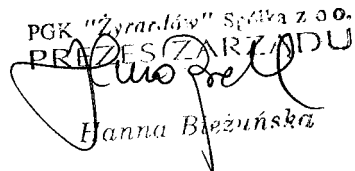 PGK "Żyrardów" Spółka z o.o.
PREZES ZARZĄDU
Hanna Bieżuńska